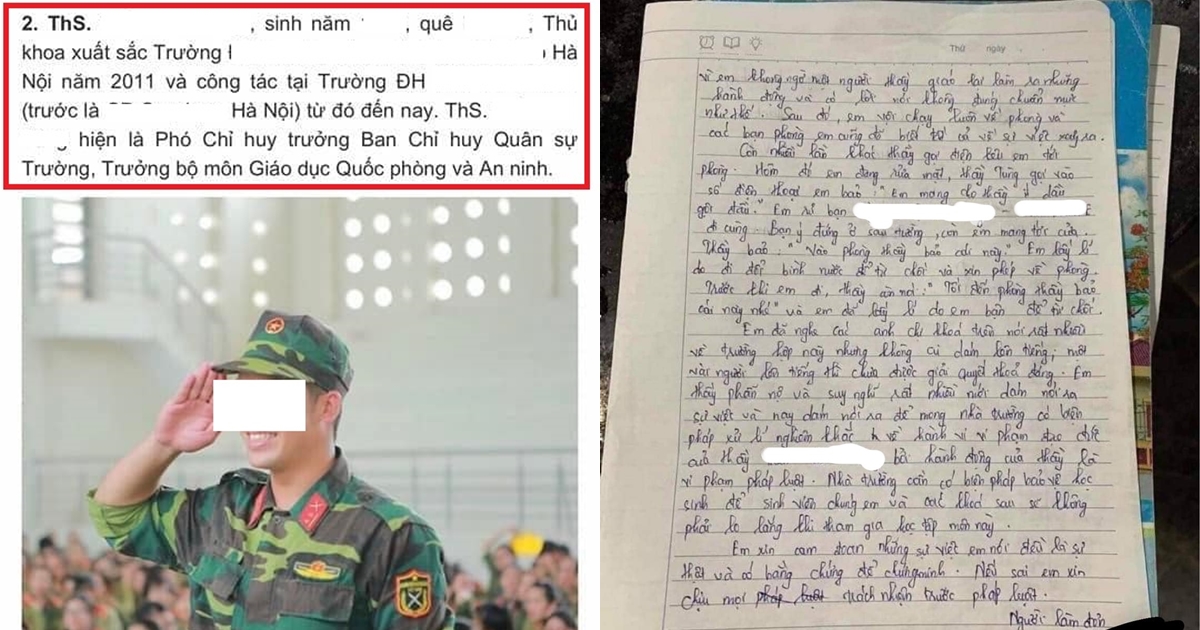 2. ThS. , sinh năm , quê , Thủ
khoa xuất sắc Trường Hà
Nội năm 2011 và công tác tại Trường ĐH
(trước là Hà Nội) từ đó đến nay. ThS.
hiện là Phó Chỉ huy trưởng Ban Chỉ huy Quân sự
Trường, Trưởng bộ môn Giáo dục Quốc phòng và An ninh.
Thứ ngày
vì em không ngờ một người thầy giáo lại làm ra những
hành động và có lời nói không đúng chuẩn mực
như thế. Sau đó, em vội chạy luôn về phòng và
các bạn phòng em cũng đã biết về sự việc xảy ra.
Còn nhiều lần khác thầy gọi điện kêu em tới
phòng. Hôm đó em đang rửa mặt, thầy Tùng gọi vào
số điện thoại em bảo: "Em mang cho thầy ít dầu
gội đầu." Em rủ bạn
đi cùng. Bạn ý đứng ở sau tường, còn em mang tới cửa.
Thầy bảo: "Vào phòng thầy bảo cái này." Em lấy lí
do đi đổi bình nước để từ chối và xin phép về phòng.
Trước khi em đi, thầy còn nói: "Tối đến phòng thầy bảo
cái này nhé" và em đã lấy lí do em bận để từ chối.
Em đã nghe các anh chị khoá trên nói rất nhiều
về trường hợp này nhưng không ai dám lên tiếng, một
vài người lên tiếng thì chưa được giải quyết thoả đáng. Em
thấy phẫn nộ và suy nghĩ rất nhiều mới dám nói ra
sự việc và nay dám nói ra để mong nhà trường có biện
pháp xử lí nghiêm khắc về hành vi vi phạm đạo đức
của thầy bởi hành động của thầy là
vi phạm pháp luật. Nhà trường cần có biện pháp bảo vệ học
sinh để sinh viên chúng em và các khoá sau sẽ không
phải lo lắng khi tham gia học tập môn này.
Em xin cam đoan những sự việc em nói đều là sự
thật và có bằng chứng để chứng minh. Nếu sai em xin
chịu mọi trách nhiệm trước pháp luật.
Người làm đơn